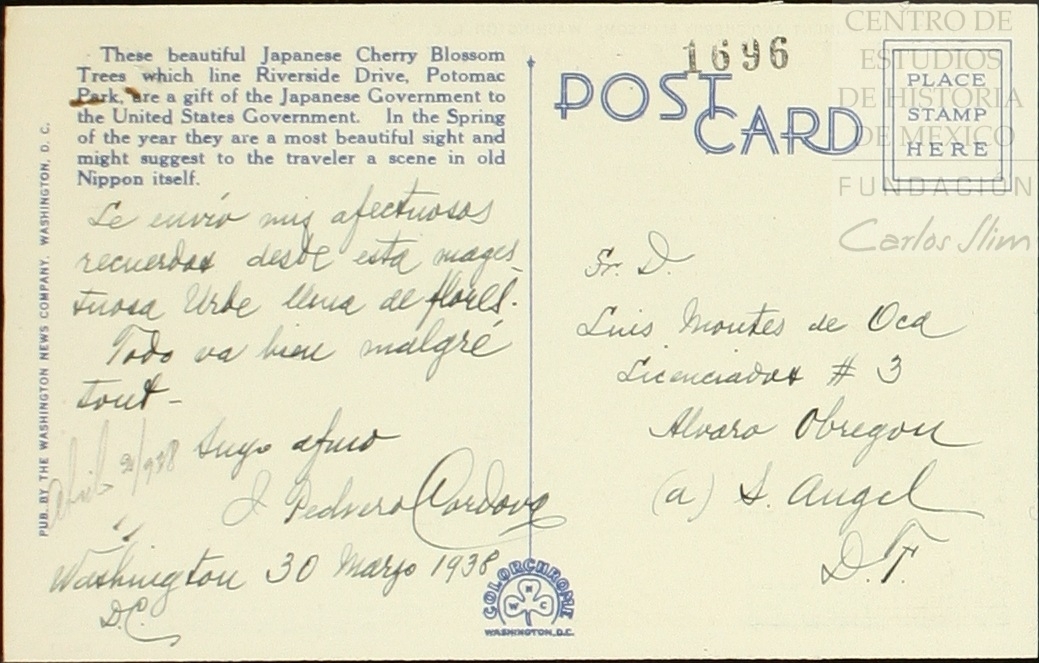 These beautiful Japanese Cherry Blossom
Trees which line Riverside Drive, Potomac
Park, are a gift of the Japanese Government to
the United States Government. In the Spring
of the year they are a most beautiful sight and
might suggest to the traveler a scene in old
Nippon itself.
Le envío mis afectuosos
recuerdos desde esta mages_
tuosa Urbe llena de flores.
Todo va bien malgré
tout -
Suyo afmo
J Pedrero Cordova
Abril /938
Washington 30 Marzo 1938
D.C.
PUB. BY THE WASHINGTON NEWS COMPANY, WASHINGTON, D. C.
COLORCHROME
W N C
WASHINGTON, D.C.
1696
POST
CARD
PLACE
STAMP
HERE
Sr. D.
Luis Montes de Oca
Licenciados # 3
Alvaro Obregon
(a) S. Angel
D.F.
CENTRO DE
ESTUDIOS
DE HISTORIA
DE MEXICO
FUNDACIÓN
Carlos Slim